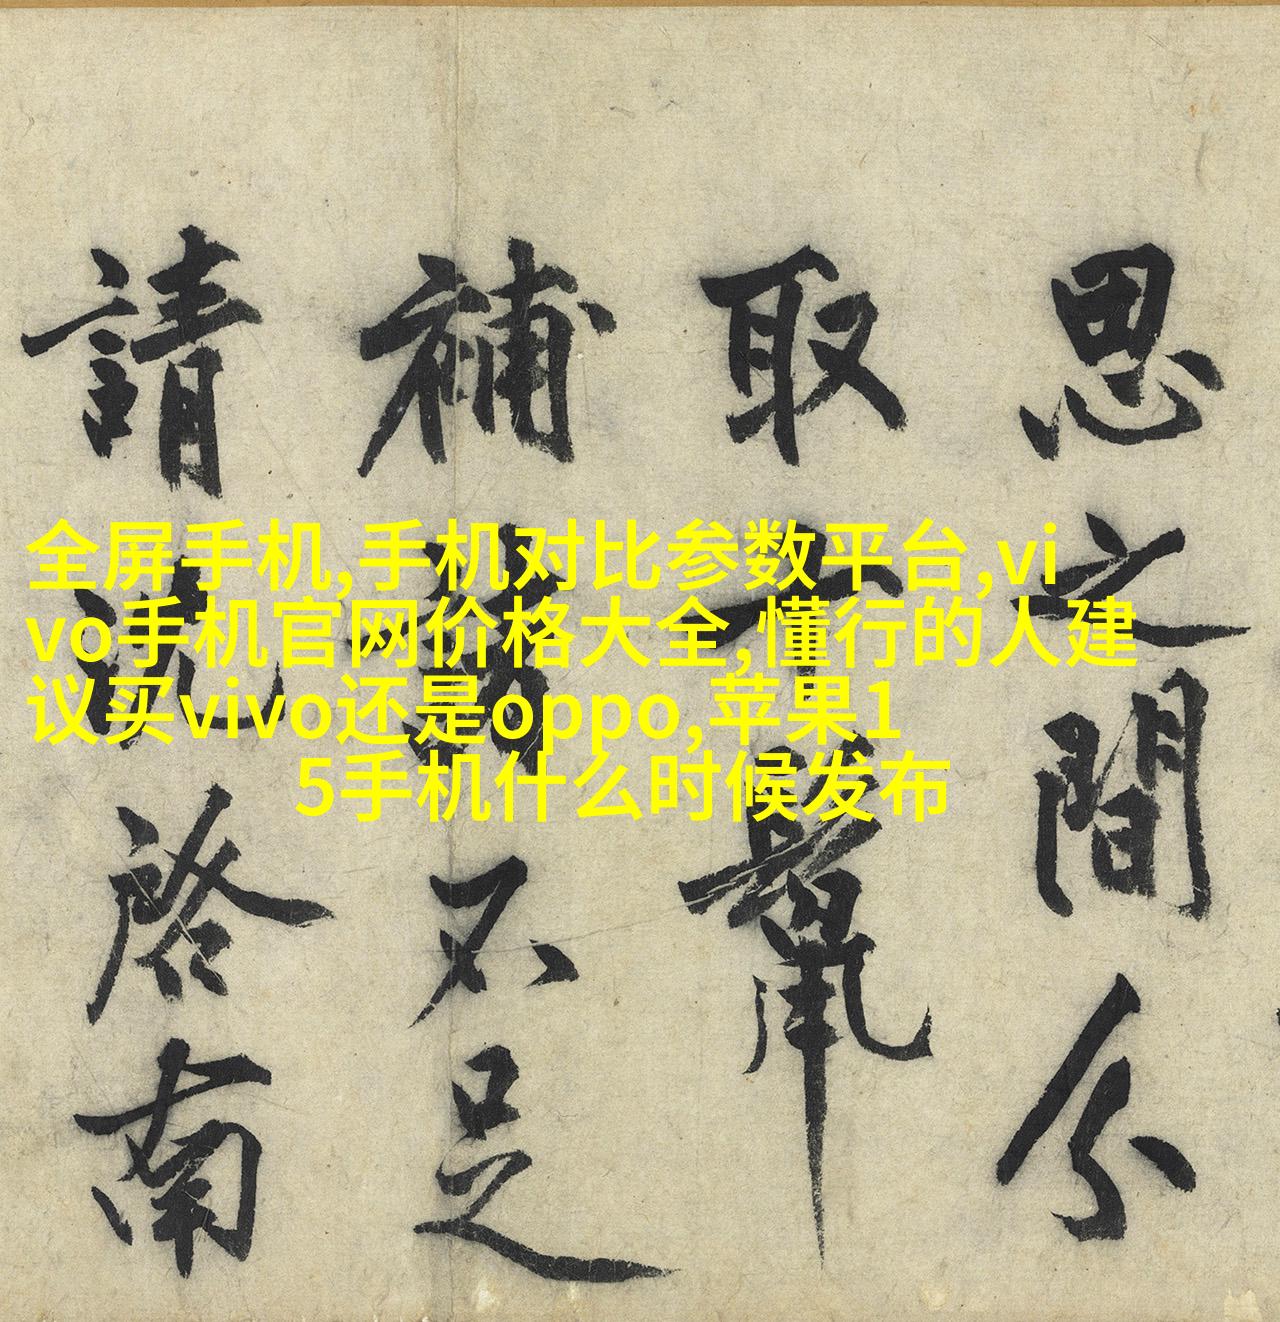 全屏手机,手机对比参数平台,vi
vo手机官网价格大全,懂行的人建
议买vivo还是oppo,苹果1
5手机什么时候发布
思之間分
取十鬣
補諸不足
請沈啓南